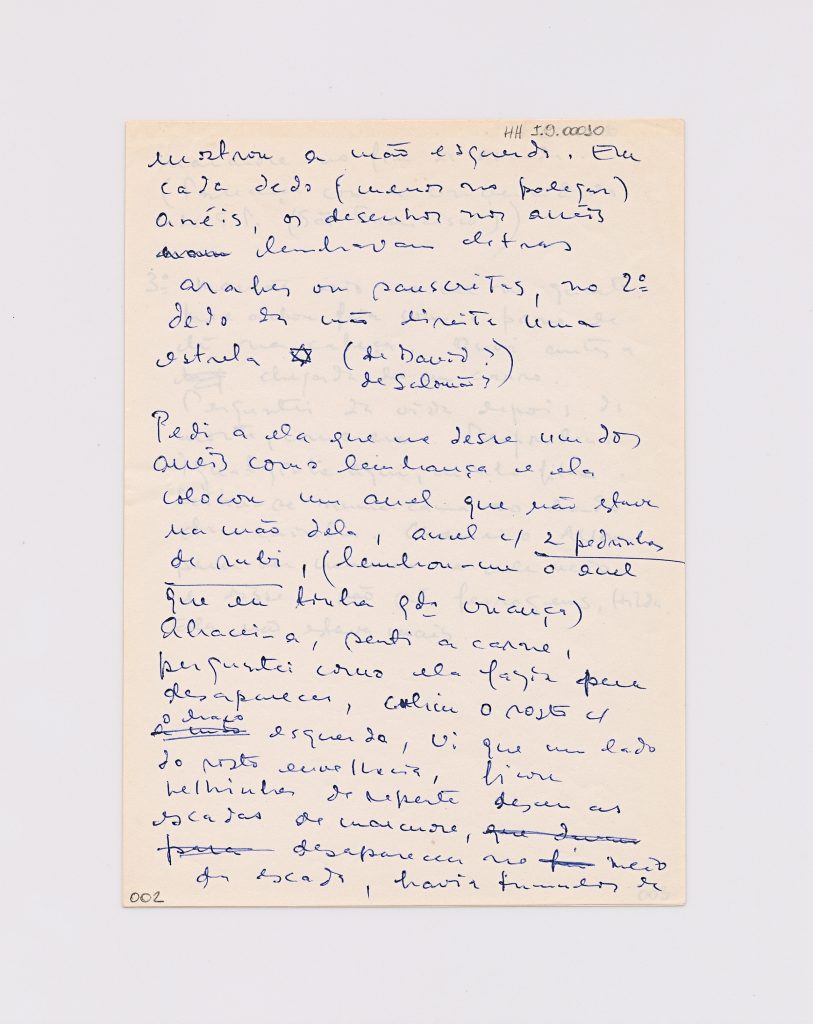 HH I.9.00010
mostrou a mão esquerda. Em
cada dedo (menos no polegar)
anéis, os desenhos nos anéis
lembravam letras
arabes ou sanscritas, no 2º
dedo da mão direita uma
estrela ✡ (de David?
de Salomão?)
Pedi a ela que me desse um dos
anéis como lembrança e ela
colocou um anel que não estava
na mão dela, anel c/ 2 pedrinhas
de rubi, (lembrou-me o anel
que eu tinha qdo criança)
Abracei-a, senti a carne,
perguntei como ela fazia para
desaparecer, cobriu o rosto c/
o braço
a mão esquerdo, vi que um lado
do rosto envelhecia, ficou
velhinha de repente desceu as
escadas de marmore, que
para desapareceu no meio
da escada, havia tumulos de
002